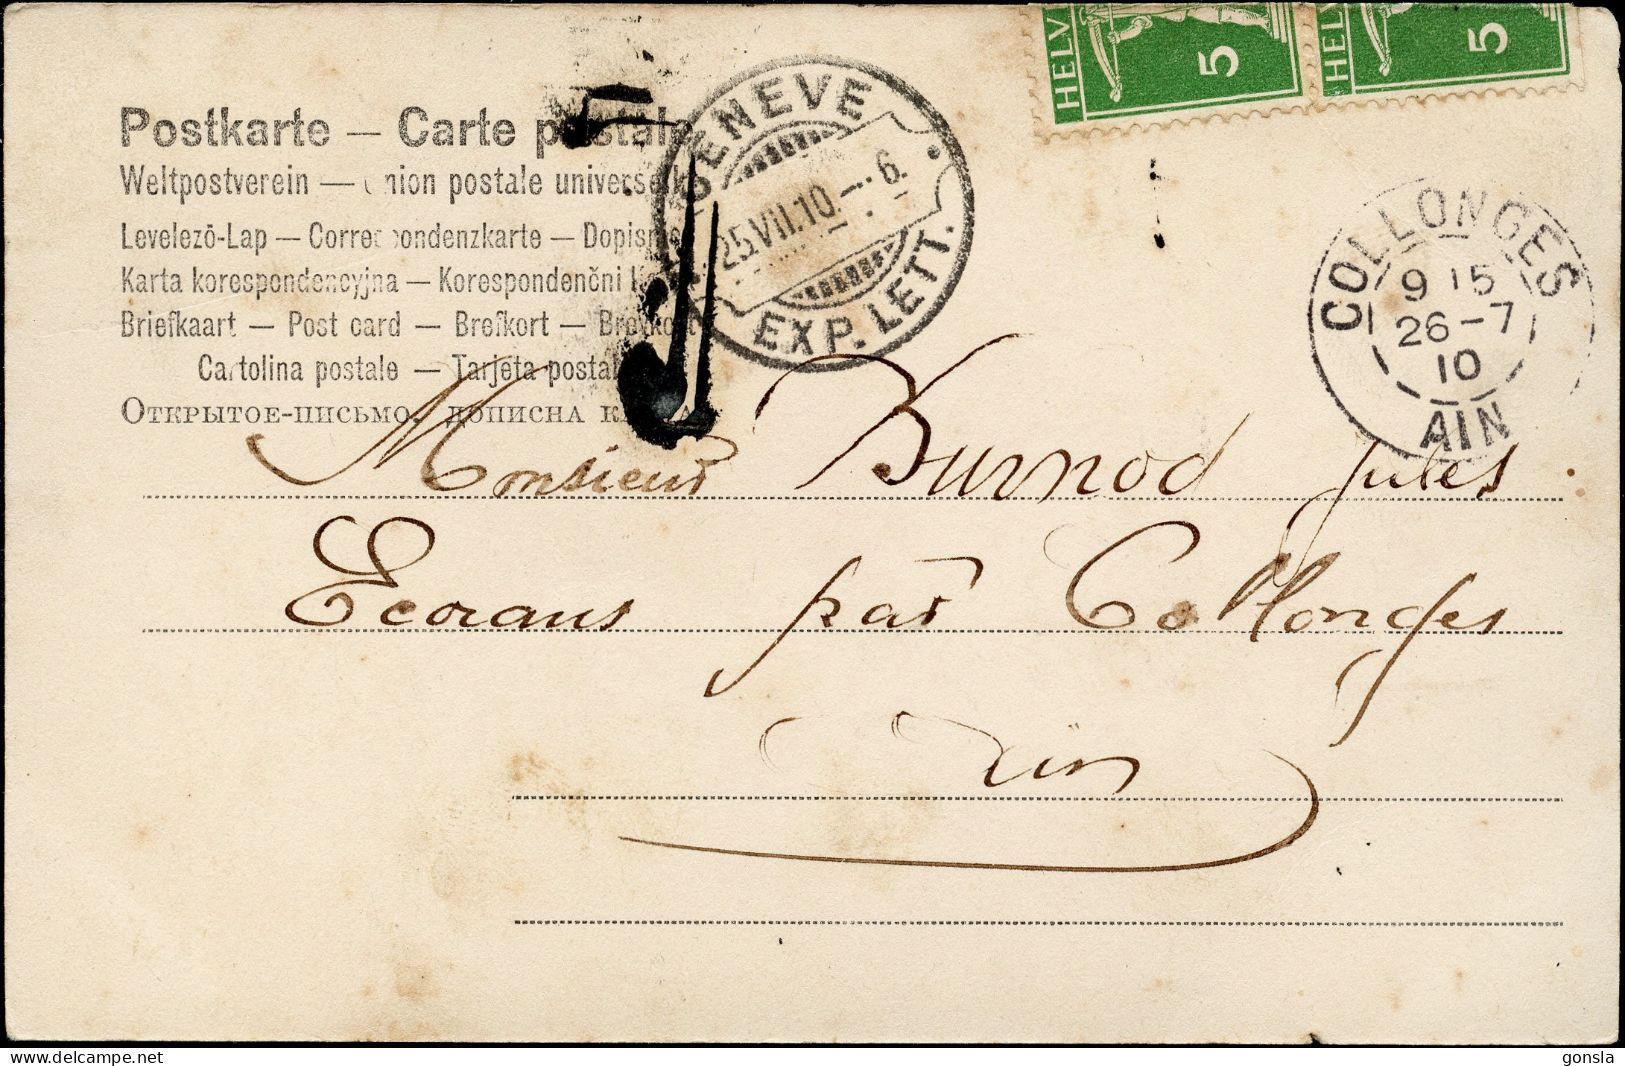 HELV 5
HELV 5
Postkarte — Carte postale
Weltpostverein — Union postale universelle
Levelezõ-Lap — Correspondenzkarte — Dopisnice
Karta korespondencyjna — Korespondenční
Briefkaart — Post card — Brefkort — Brevkort
Cartolina postale — Tarjeta postal
ОТКРЫТОЕ-ПИСЬМО. ДОПИСНА
GENEVE
25.VII.10.—6.
EXP. LETT.
COLLONGES
9 15
26-7
10
AIN
Monsieur Burnod Jules
Ecorans par Collonges
Ain
www.delcampe.net
gonsla